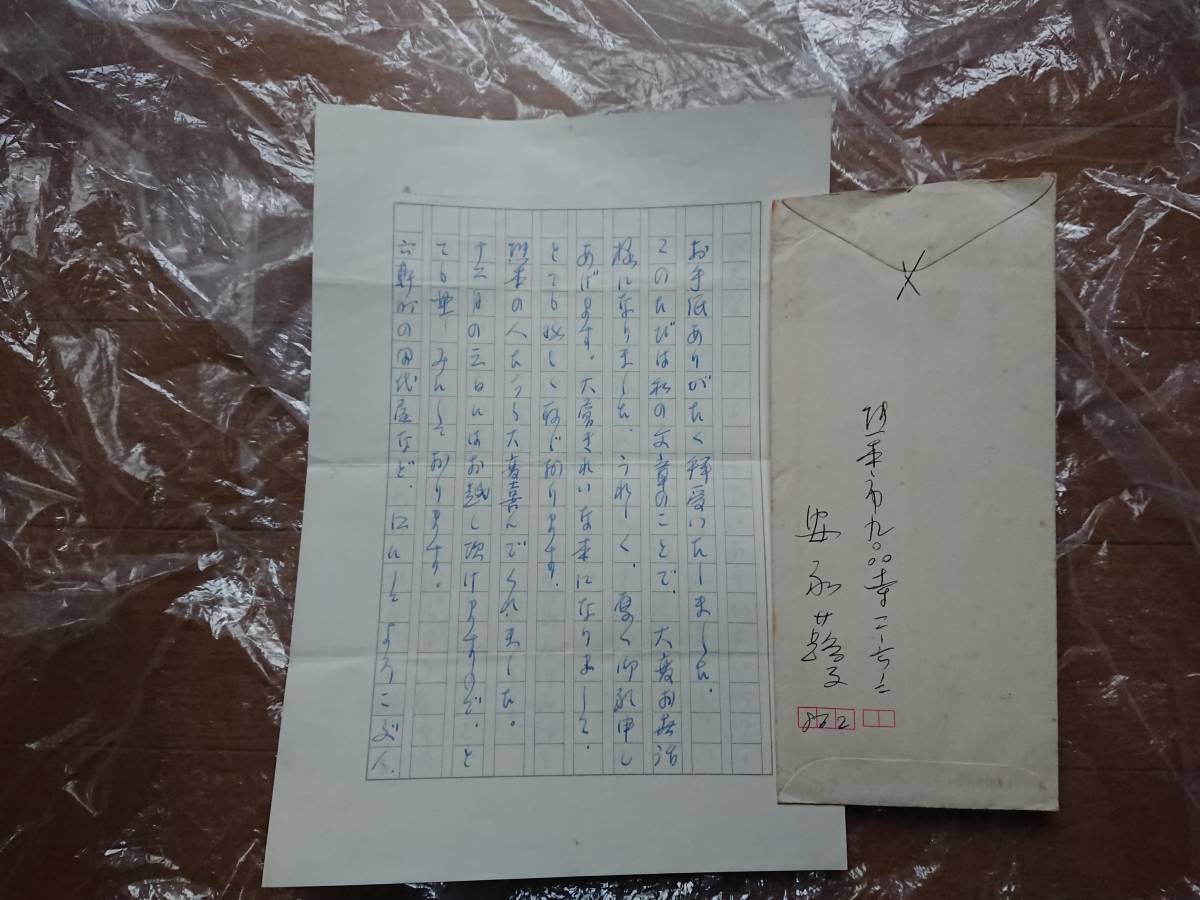 お手紙ありがたく拝受いたしました。
このたびは私の文章のことで、大変お世話
様になりました。うれしく、厚く御礼申し
あげます。大変きれいな本になりまして、
とても嬉しく存じおります。
の人たちも大変喜んでくれました。
十二月の三日にはお越し頂けますので、と
ても楽しみにしております。
六軒町の田代屋など、口にしてよろこぶ人
市九
安永蕗子
862